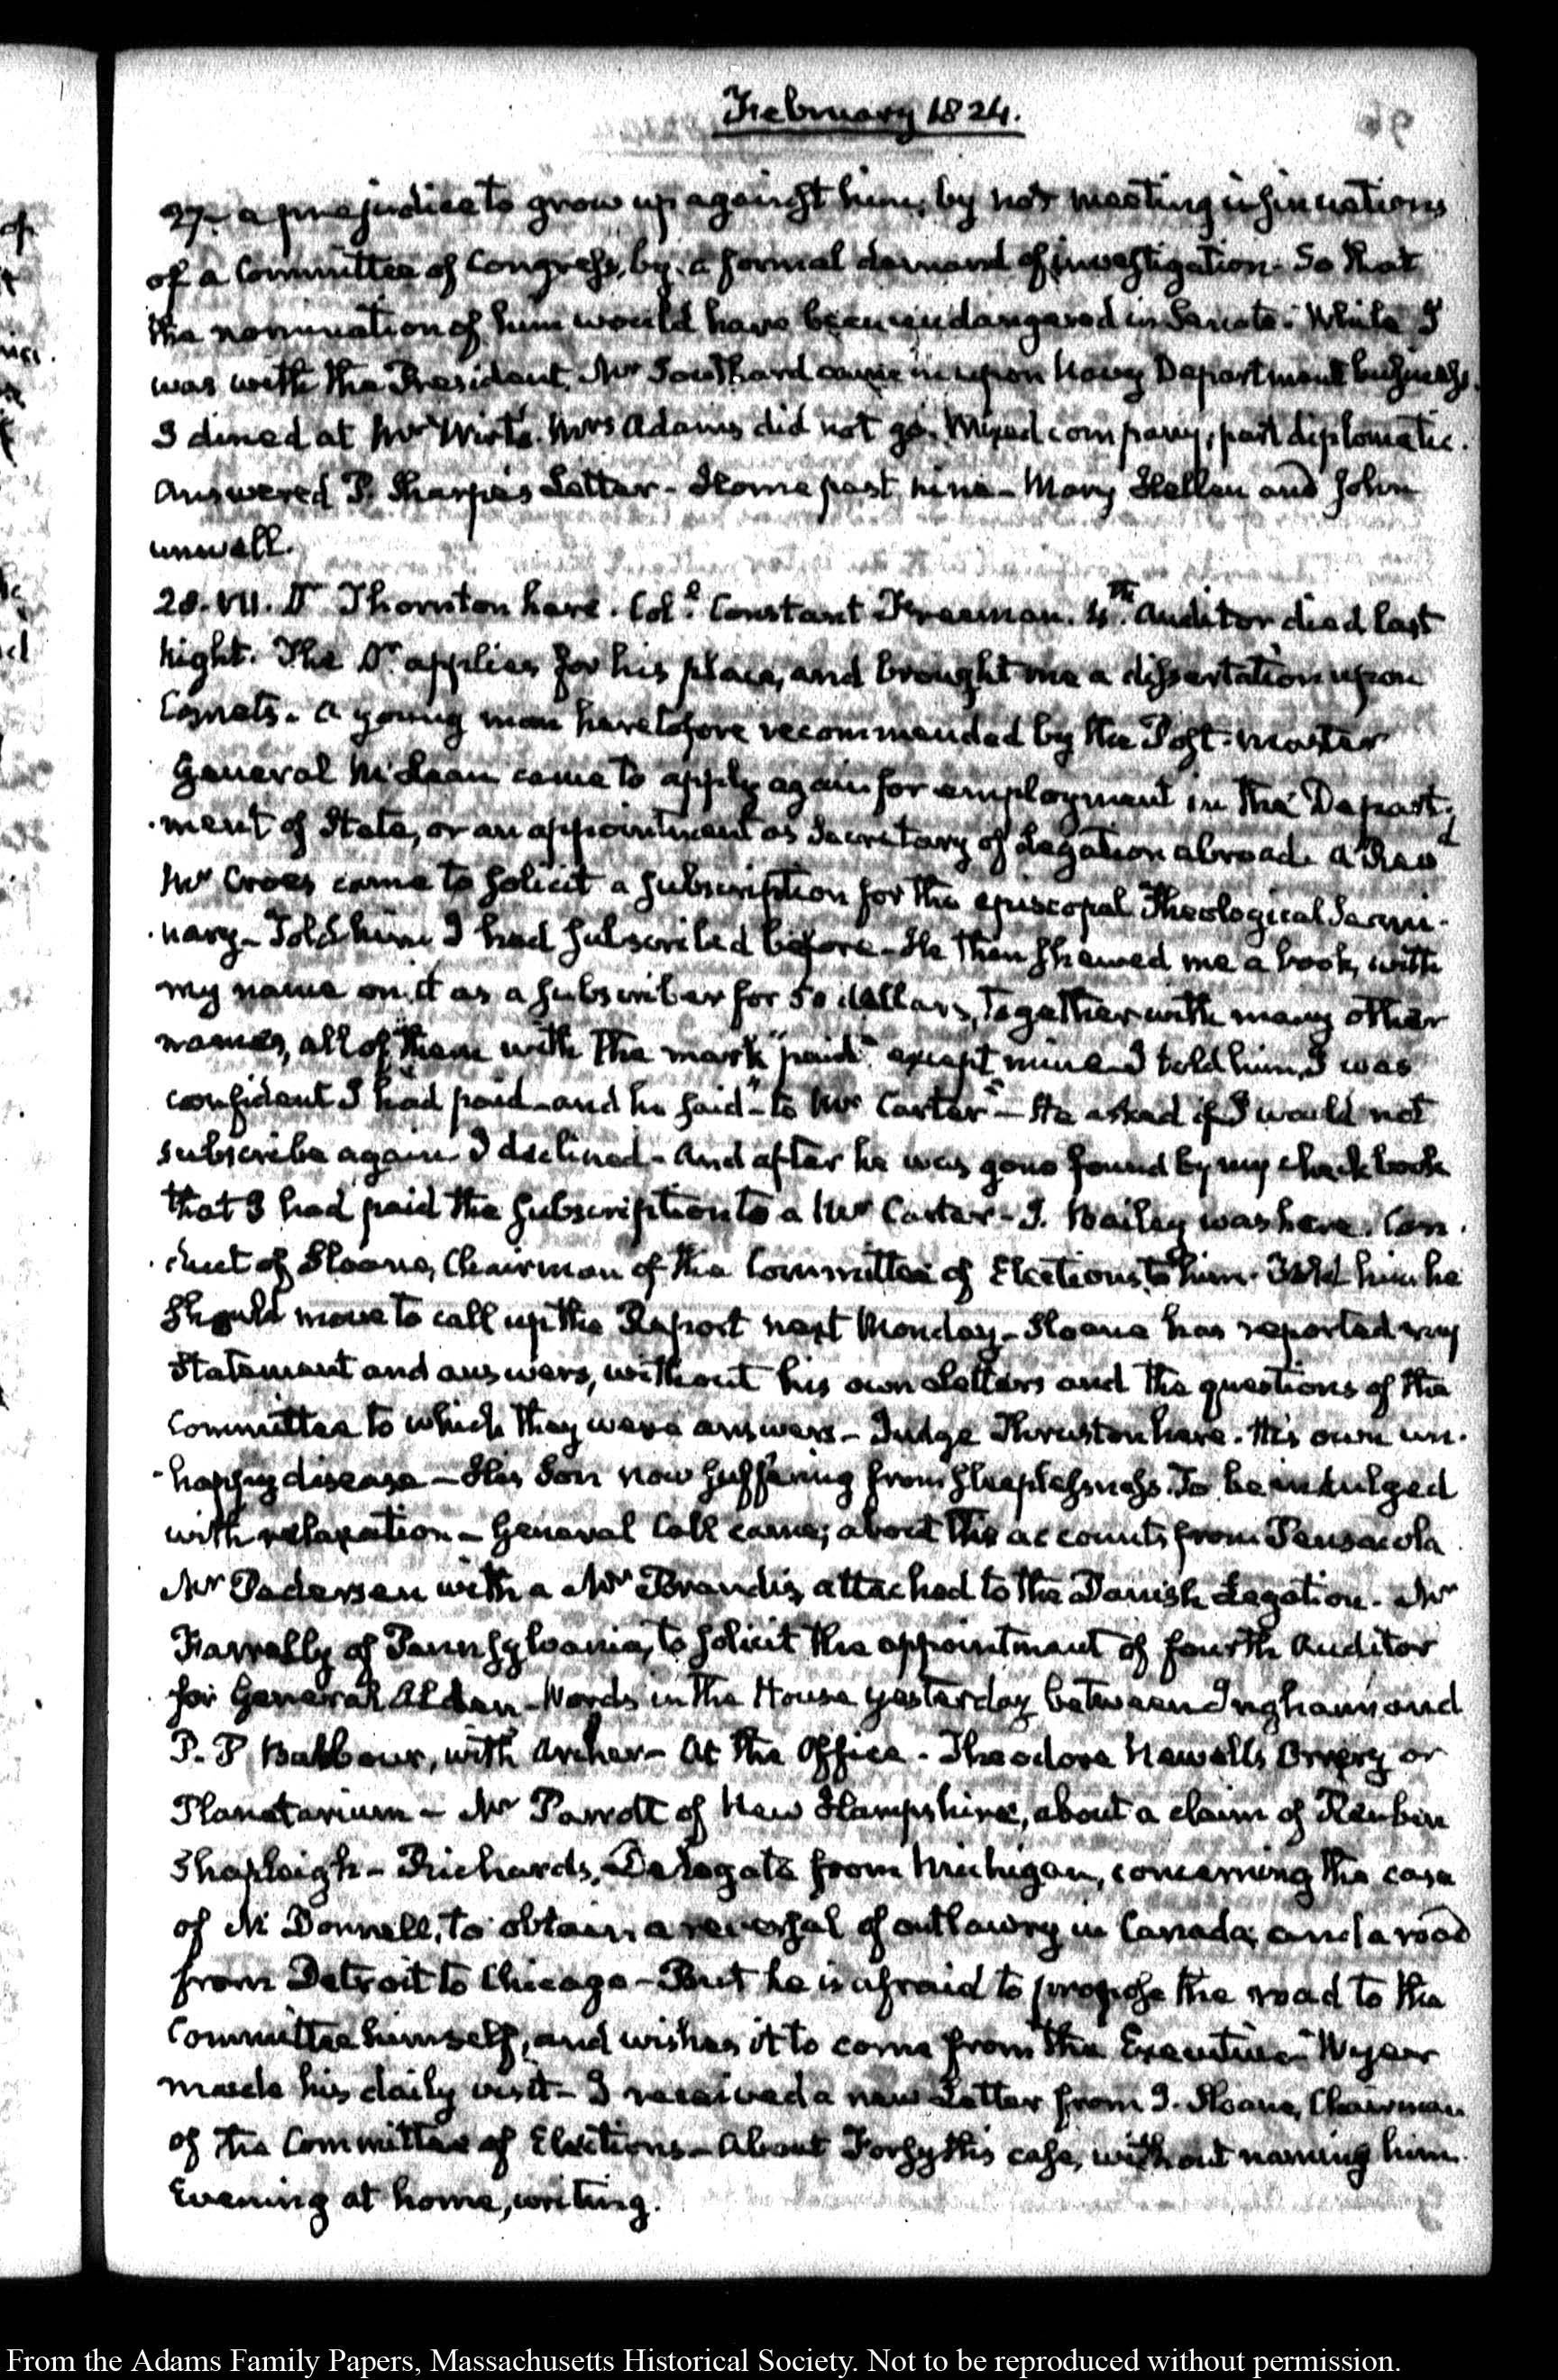 February 1824.
27. a prejudice to grow up against him, by not meeting insinuations
of a Committee of Congress, by a formal demand of investigation. So that
the nomination of him would have been endangered in Senate. While I
was with the President, Mr Southard came in upon Navy Department business.
I dined at Mr Wirt's. Mrs Adams did not go. Mixed company, part diplomatic.
Answered P. Sharpe's Letter - Home past nine - Mary Hellen and John
unwell.
28. VII. Dr Thornton here. Coll. Constant Freeman. 4th. Auditor died last
Night. The Dr applies for his place, and brought me a dissertation upon
Comets. A young man heretofore recommended by the Post-master
General McLean came to apply again for employment in the Depart-
ment of State, or an appointment as Secretary of Legation abroad. A Revd
Mr Croes came to solicit a subscription for the episcopal Theological Semi-
nary - Told him I had subscribed before - He then shewed me a book, with
my name on it as a subscriber for 50 dollars, together with many other
names, all of them with the mark "paid" except mine - I told him, I was
confident I had paid - and he said "to Mr Carter" - He asked if I would not
subscribe again - I declined - And after he was gone found by my check book
that I had paid the subscription to a Mr Carter - J. Bailey was here. Con-
duct of Sloane, Chairman of the Committee of Elections, to him. Told him he
should move to call up the Report next Monday - Sloane has reported my
Statement and answers, without his own Letters and the questions of the
Committee to which they were answers - Judge Thruston here. His own un-
happy disease - His Son now suffering from sleeplessness. To be indulged
with relaxation - General Call came; about the accounts from Pensacola
Mr Pedersen with a Mr Brandis, attached to the Danish Legation. Mr
Farrelly of Pennsylvania, to solicit the appointment of fourth Auditor
for General Alden - Words in the House yesterday between Ingham and
P. P Barbour, with Archer - At the Office. Theodore Newell's Orrery or
Planetarium - Mr Parrott of New Hampshire, about a claim of Reuben
Shapleigh - Richards, Delegate from Michigan, concerning the case
of McDonnell, to obtain a reversal of outlawry in Canada, and a road
from Detroit to Chicago - But he is afraid to propose the road to the
Committee himself, and wishes it to come from the Executive - Wyer
made his daily visit - I received a new Letter from J. Sloane, Chairman
of the Committee of Elections - About Forsyth's case, without naming him.
Evening at home, writing.
From the Adams Family Papers, Massachusetts Historical Society. Not to be reproduced without permission.